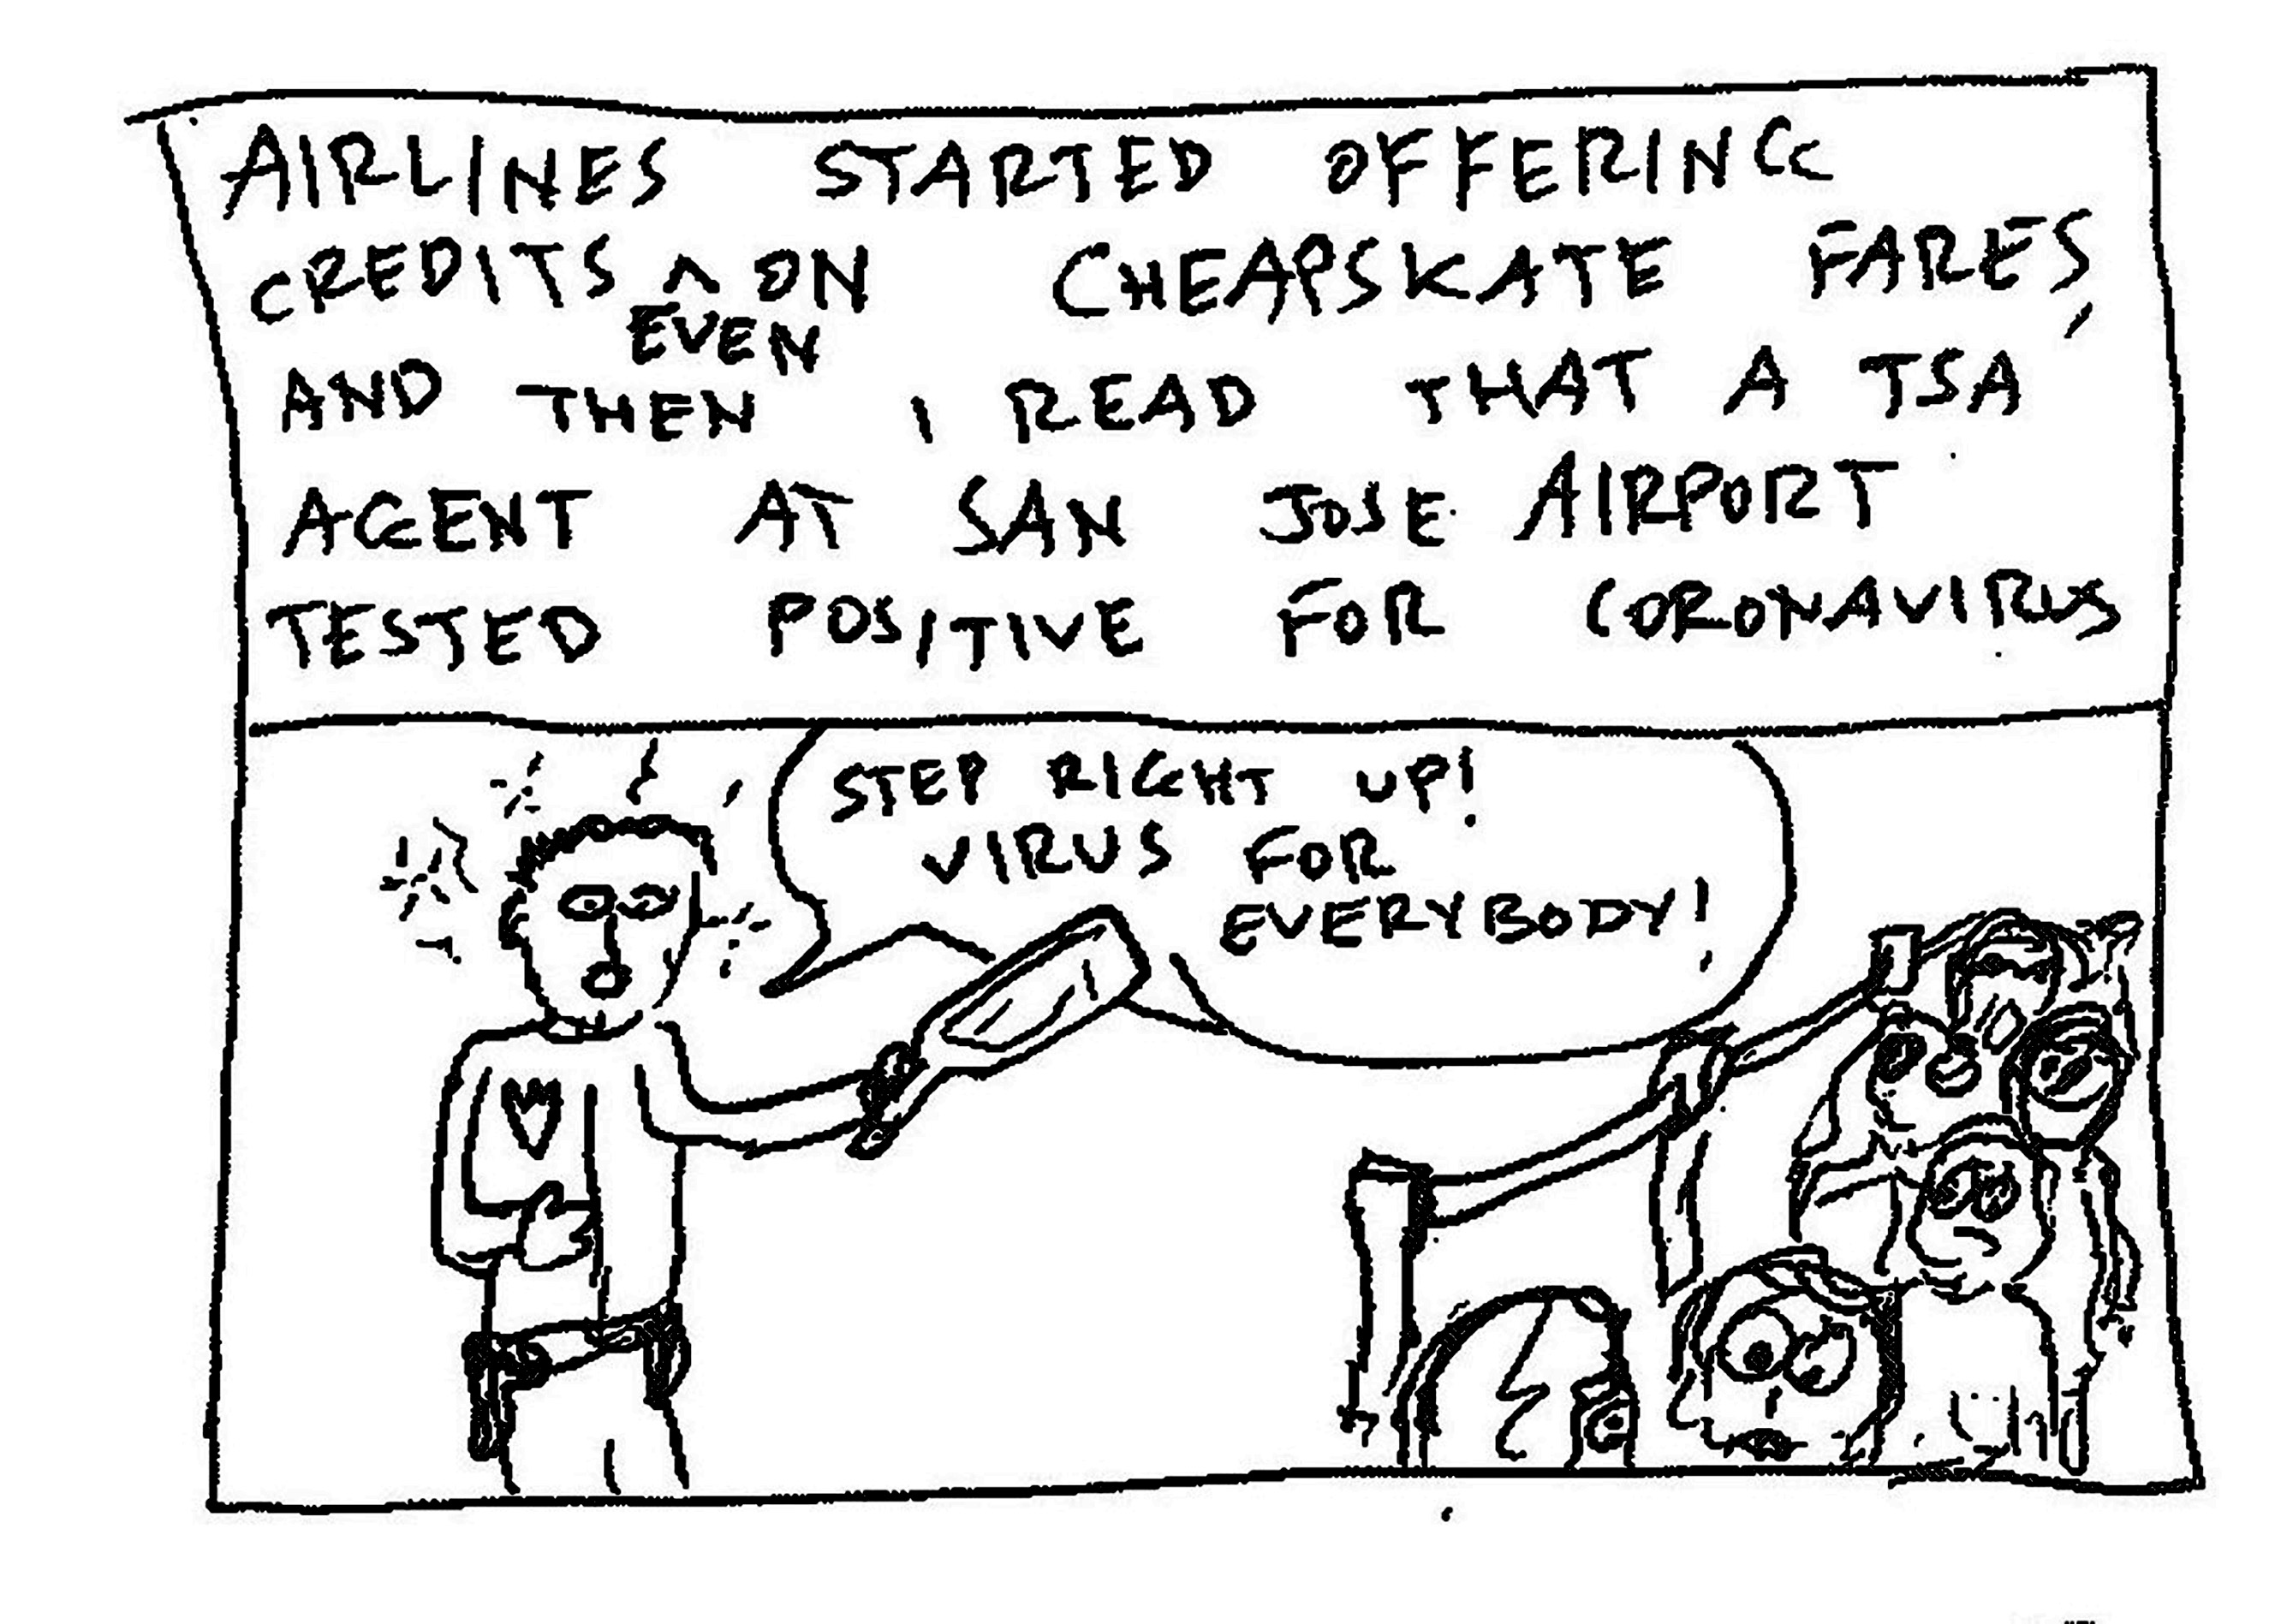 AIRLINES STARTED OFFERING
CREDITS ^ ON CHEAPSKATE FARES,
EVEN
AND THEN I READ THAT A TSA
AGENT AT SAN JOSE AIRPORT
TESTED POSITIVE FOR CORONAVIRUS
STEP RIGHT UP!
VIRUS FOR
EVERYBODY!